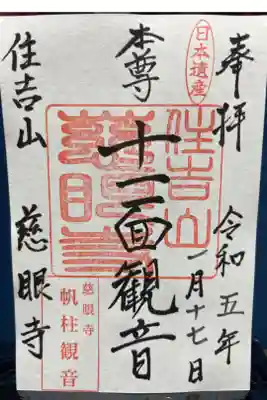 奉拝
令和五年
一月十七日
日本遺産
本尊
十一面観音
住吉山
慈眼寺
慈眼寺
帆柱観音
住吉山
慈眼寺